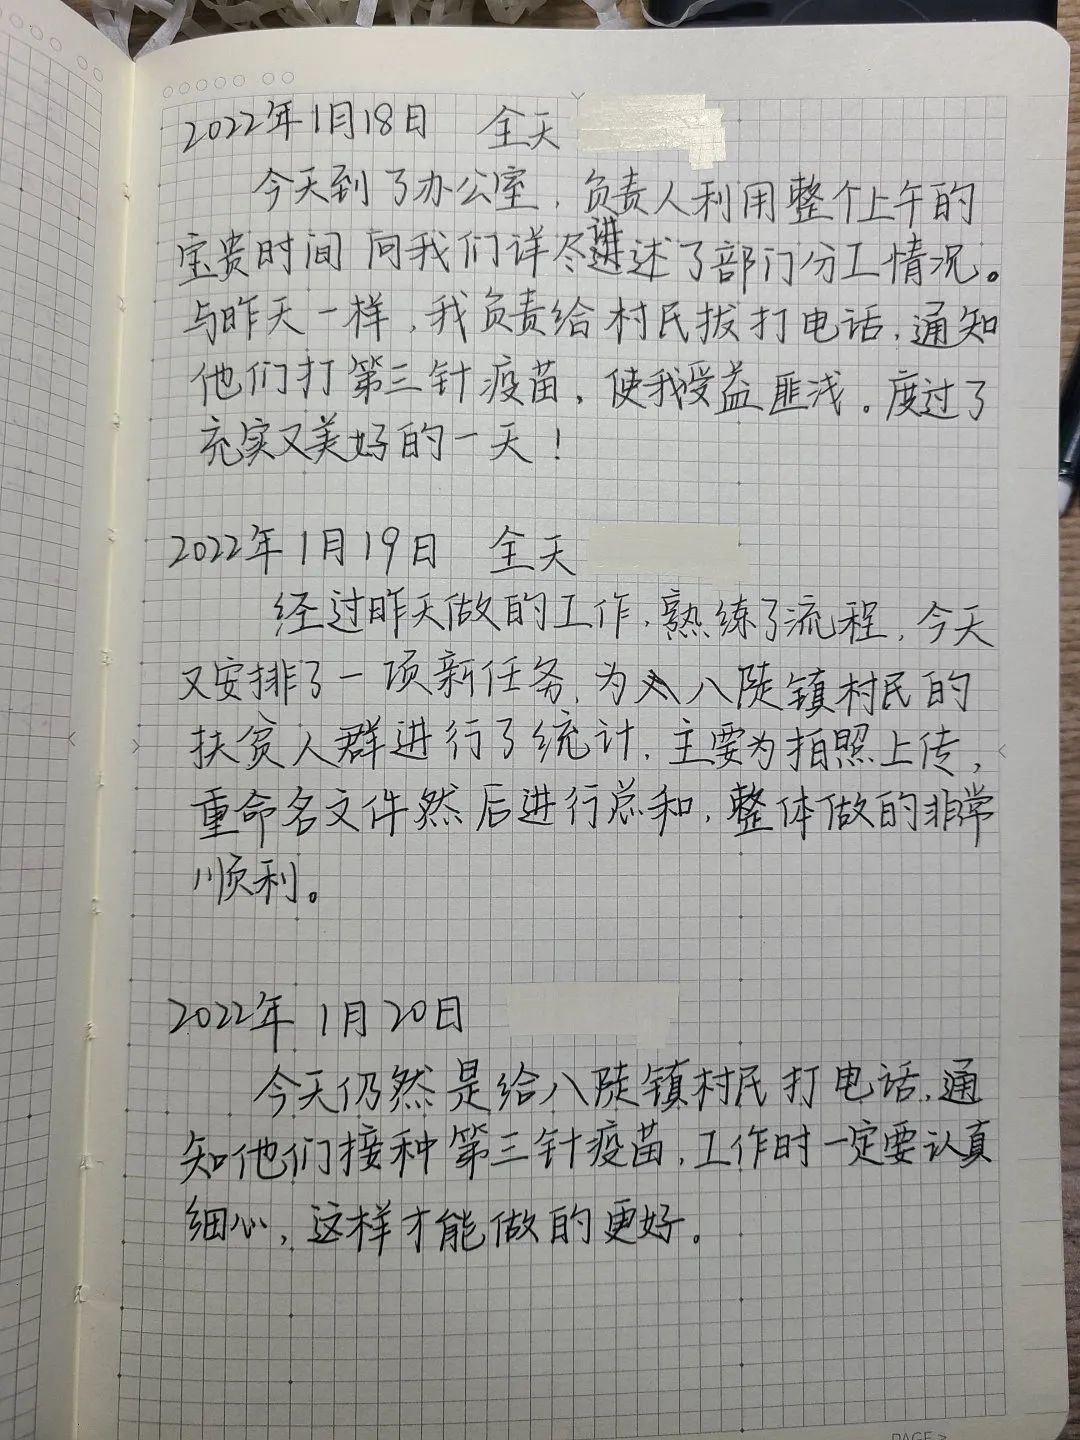 2022年1月18日 全天
今天到了办公室,负责人利用整个上午的
宝贵时间向我们详尽讲述了部门分工情况。
与昨天一样,我负责给村民拔打电话,通知
他们打第三针疫苗,使我受益匪浅。度过了
充实又美好的一天!
2022年1月19日 全天
经过昨天做的工作,熟练了流程,今天
又安排了一项新任务,为八陡镇村民的
扶贫人群进行了统计,主要为拍照上传,
重命名文件然后进行总和,整体做的非常
顺利。
2022年1月20日
今天仍然是给八陡镇村民打电话,通
知他们接种第三针疫苗,工作时一定要认真
细心,这样才能做的更好。
PAGE >